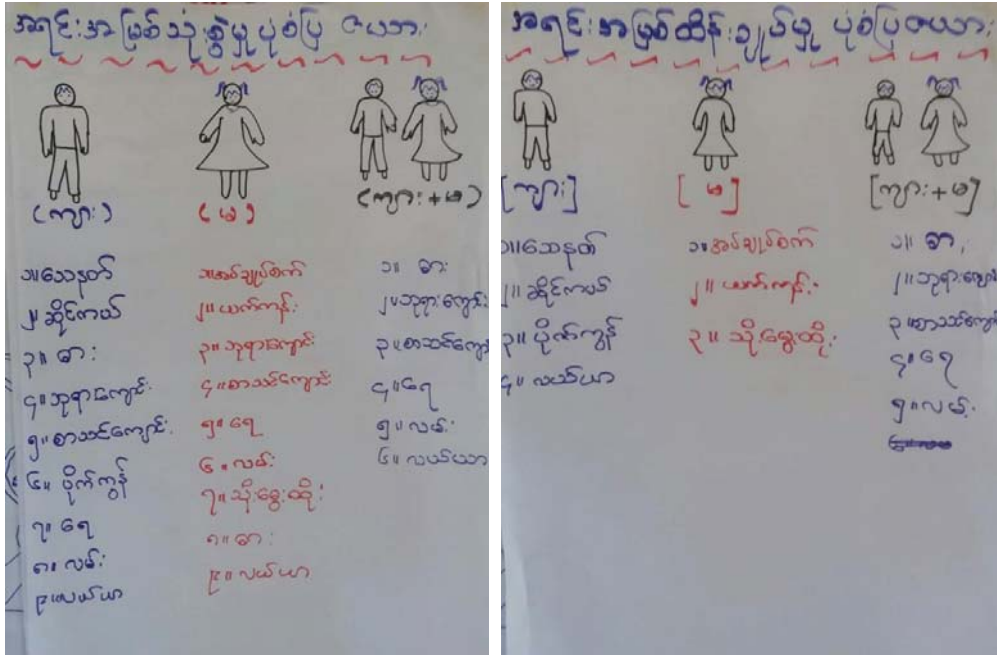 အရင်းအမြစ်သုံးစွဲမှုပုံစံပြ ဇယား
(ကျား)
(မ)
(ကျား+မ)
၁။သေနတ်
၂။ဆိုင်ကယ်
၃။ဓား
၄။ဘုရားကျောင်း
၅။စာသင်ကျောင်း
၆။ပိုက်ကွန်
၇။ရေ
၈။လမ်း
၉။လယ်ယာ
၁။အပ်ချုပ်စက်
၂။ယက်ကန်း
၃။ဘုရားကျောင်း
၄။စာသင်ကျောင်း
၅။ရေ
၆။လမ်း
၇။သိုးမွေးထိုး
၈။ဓား
၉။လယ်ယာ
၁။ဓား
၂။ဘုရားကျောင်း
၃။စာသင်ကျော
၄။ရေ
၅။လမ်း
၆။လယ်ယာ
အရင်းအမြစ်ထိန်းချုပ်မှု ပုံစံပြဇယား
[ကျား]
[မ]
[ကျား+မ]
၁။သေနတ်
၂။ဆိုင်ကယ်
၃။ပိုက်ကွန်
၄။လယ်ယာ
၁။အပ်ချုပ်စက်
၂။ယက်ကန်း
၃။သိုးမွေးထိုး
၁။ဓား
၂။ဘုရားကျော
၃။စာသင်ကျော
၄။ရေ
၅။လမ်း